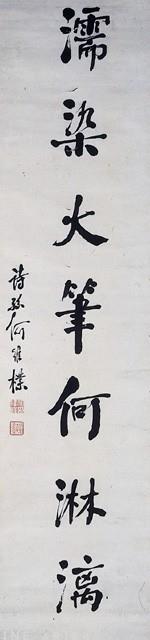 濡染大筆何淋漓
詩孫何維樸